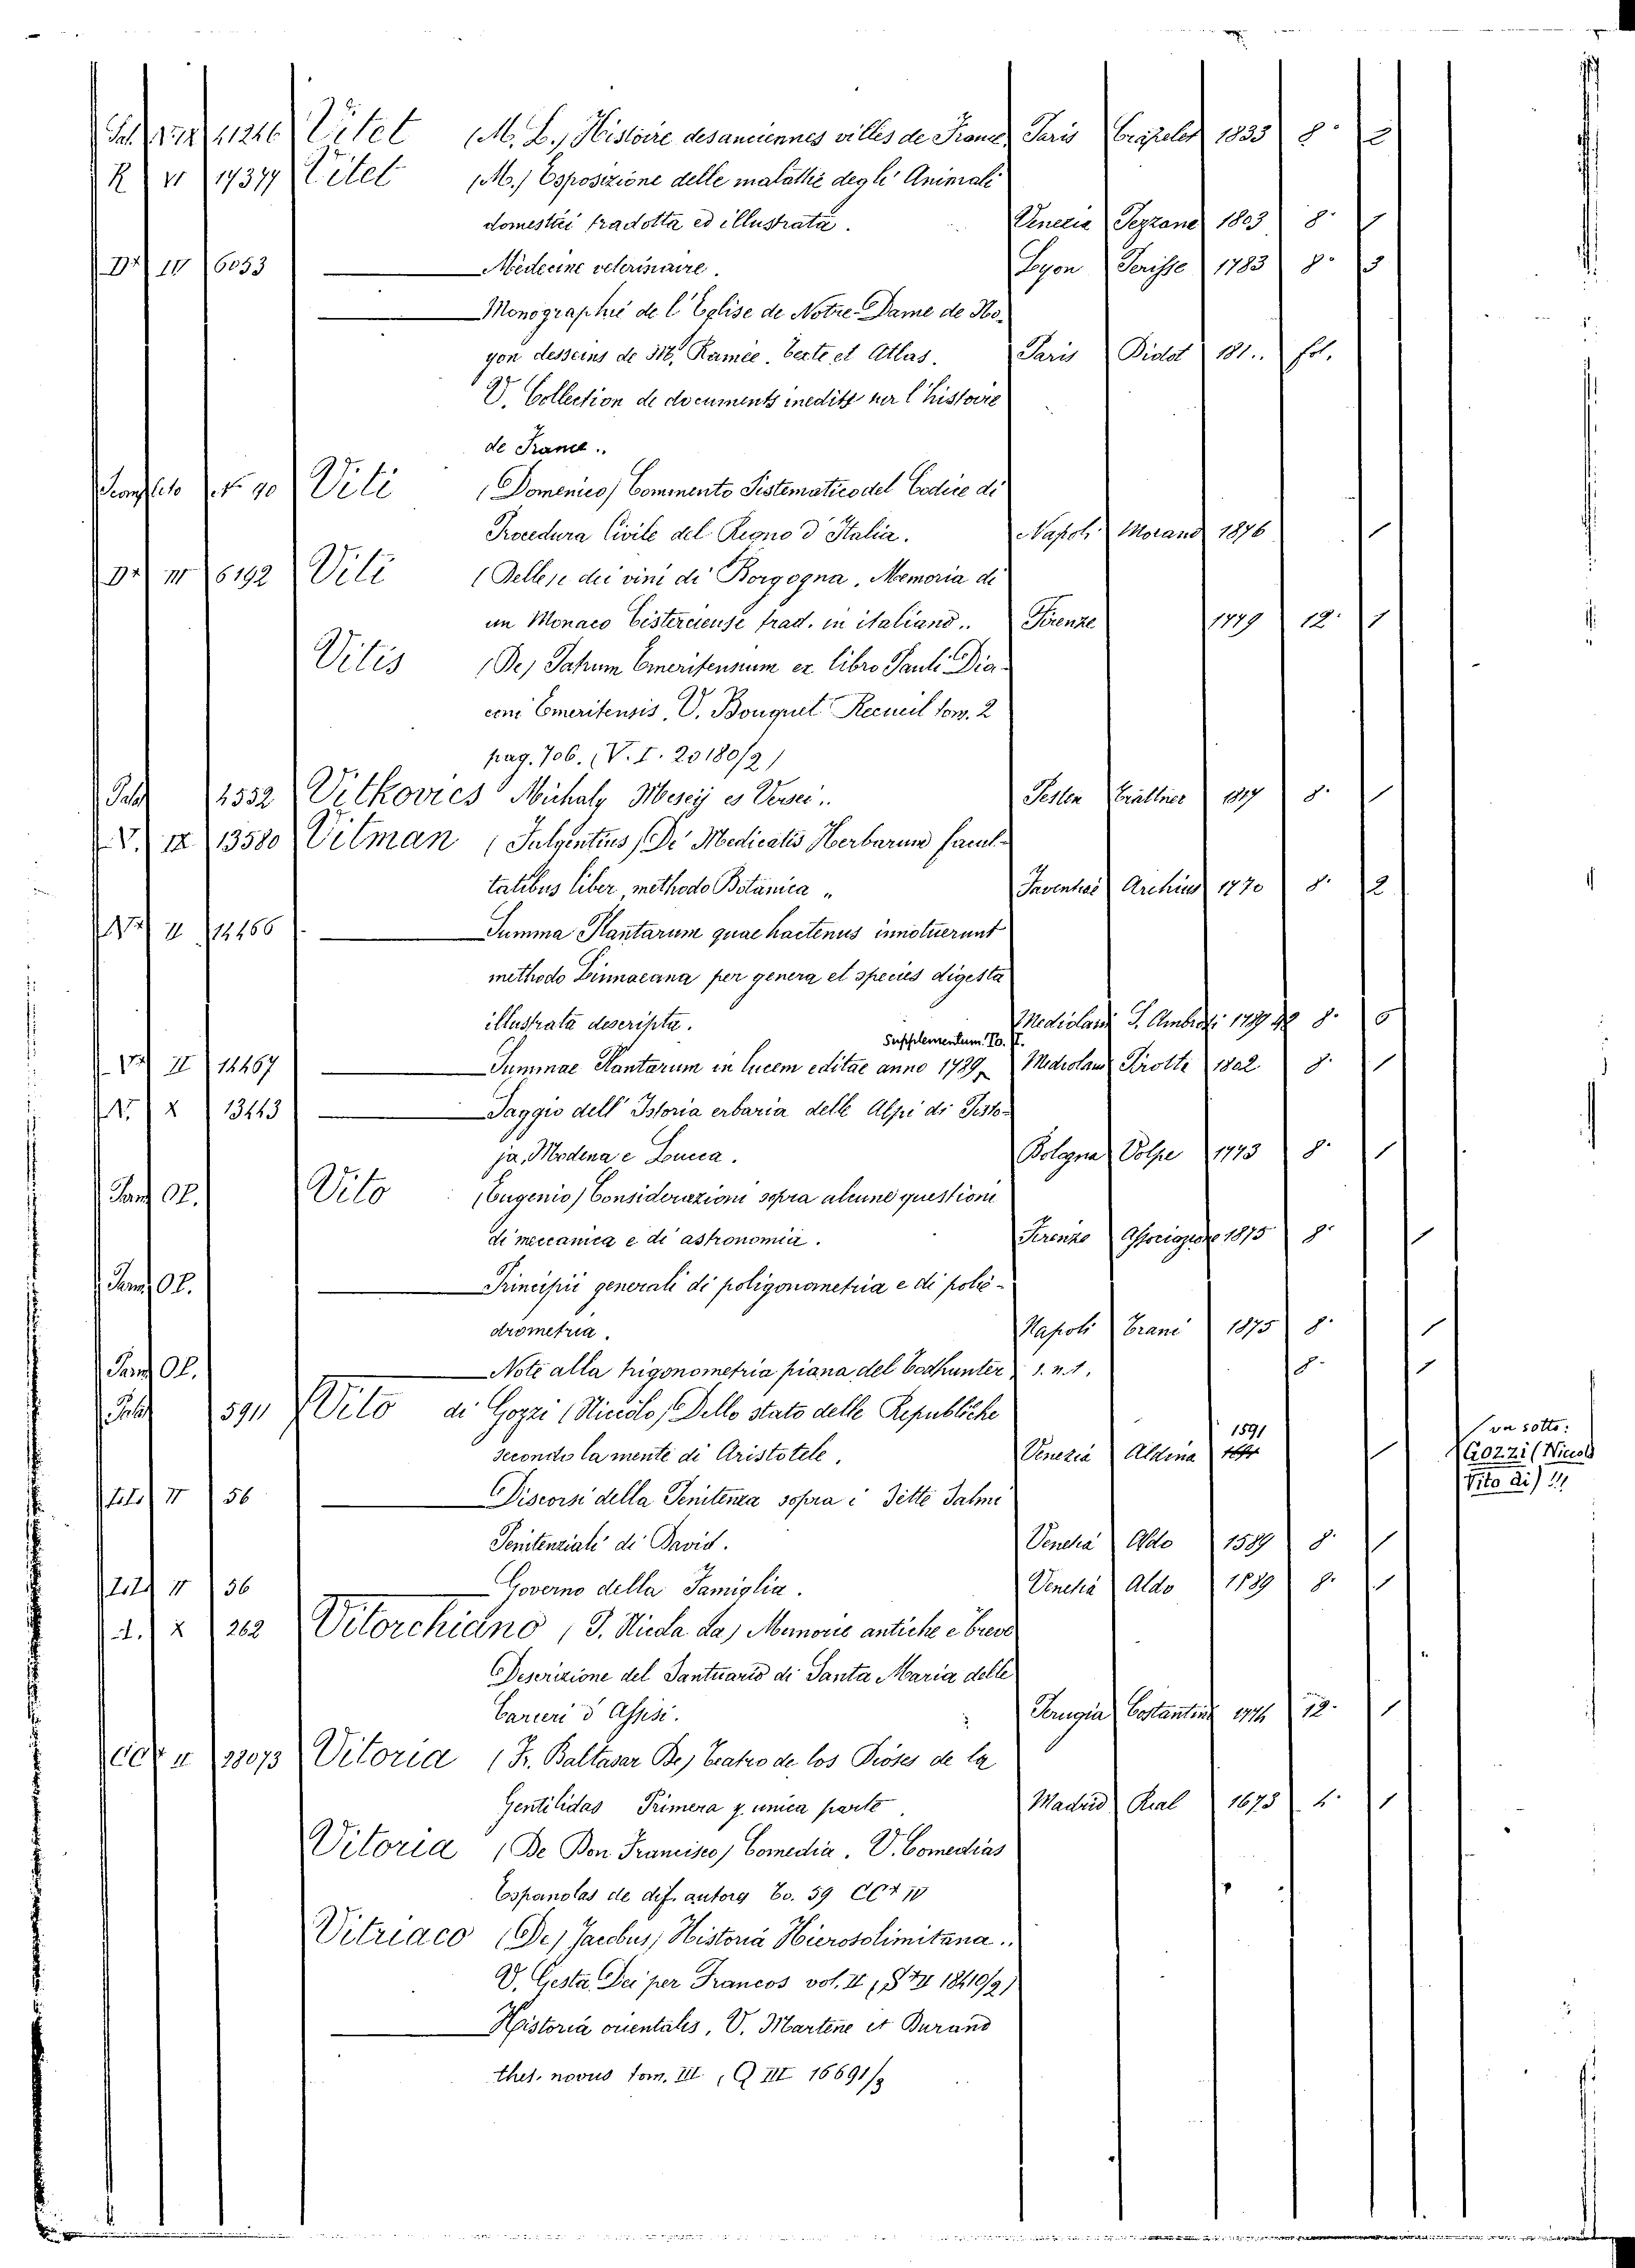 11246 Vitet (M. L.) Histoire des anciennes villes de France Paris Crapelet 1833 8° 2
R VI 17377 Vitet (M.) Esposizione delle malattie degli Animali
domestici tradotta ed illustrata. Venezia Pezzana 1803 8° 1
D* IV 6053 Médecine veterinaire. Lyon Perisse 1783 8° 3
Monographie de l'Eglise de Notre-Dame de No-
yon desseins de M. Ramée. Texte et Atlas. Paris Didot 181.. fol.
V. Collection de documents inedits sur l'histoire
de France..
N° 90 Viti (Domenico) Commento Sistematico del Codice di
Procedura Civile del Regno d'Italia. Napoli Morano 1876 1
D* III 6192 Viti (Delle) e dei vini di Borgogna, Memoria di
un Monaco Cisterciense trad. in italiano.. Firenze 1779 12° 1
Vitis (De) Patrum Emeritensium ex libro Pauli Dia-
coni Emeritensis, V. Bouquet Recueil tom. 2
pag. 706. (V. I. 20180/2)
1532 Vitkovics Michaly Meseij es Versei.. Pesten Trattner 1817 8° 1
V. IX 13580 Vitman (Fulgentius) De Medicatis Herbarum facul-
tatibus liber methodo Botanica „ Faventiae Archius 1770 8° 2
II 14466 Summa Plantarum quae hactenus innotuerunt
methodo Linnaeana per genera et species digesta
illustrata descripta. Mediolani S. Ambrosi 1789 92 8° 6
Supplementum. To. I.
II 14467 Summae Plantarum in lucem editae anno 1789 Mediolani Pirotta 1802 8° 1
X 13443 Saggio dell' Istoria erbaria delle Alpi di Pisto-
ja, Modena e Lucca. Bologna Volpe 1773 8° 1
Vito (Eugenio) Considerazioni sopra alcune questioni
di meccanica e di astronomia. Firenze Associazione 1875 8° 1
Principii generali di poligonometria e di polie-
drometria. Napoli Trani 1875 8° 1
Note alla trigonometria piana del Todhunter s. n. t. 8° 1
5911 Vito di Gozzi (Niccolo) Dello stato delle Republiche
1591
secondo la mente di Aristotele. Venezia Aldina 1
va sotto:
Gozzi (Nicolò
Vito di) !!!
II 56 Discorsi della Penitenza sopra i Sette Salmi
Penitenziali di David. Venetia Aldo 1589 8° 1
II 56 Governo della Famiglia. Venetia Aldo 1589 8° 1
X 262 Vitorchiano (P. Nicola da) Memorie antiche e breve
Descrizione del Santuario di Santa Maria delle
Carceri d'Assisi. Perugia Costantini 12° 1
II 23073 Vitoria (Fr. Baltasar De) Teatro de los Dioses de la
Gentilidas Primera y unica parte. Madrid Real 1673 4° 1
Vitoria (De Don Francisco) Comedia. V. Comedias
Espanolas de dif. autors To. 59 CC* IV
Vitriaco (De) Jacobus, Historia Hierosolimitana..
V. Gesta Dei per Francos vol. II (S IV 18410/2)
Historia orientales, V. Martene et Durand
thes. novus tom. III (Q III 16691/2